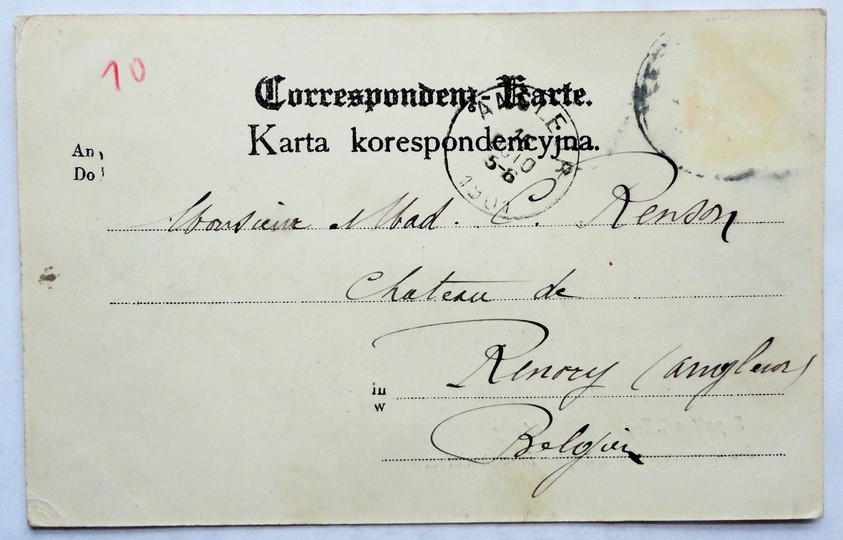 10
Correspondenz-Karte.
Karta korespondencyjna.
ANGLEUR
5-6
1901
An
Do
Monsieur & Mad. C. Renson
Chateau de
in
w
Renory (Angleur)
Belgien